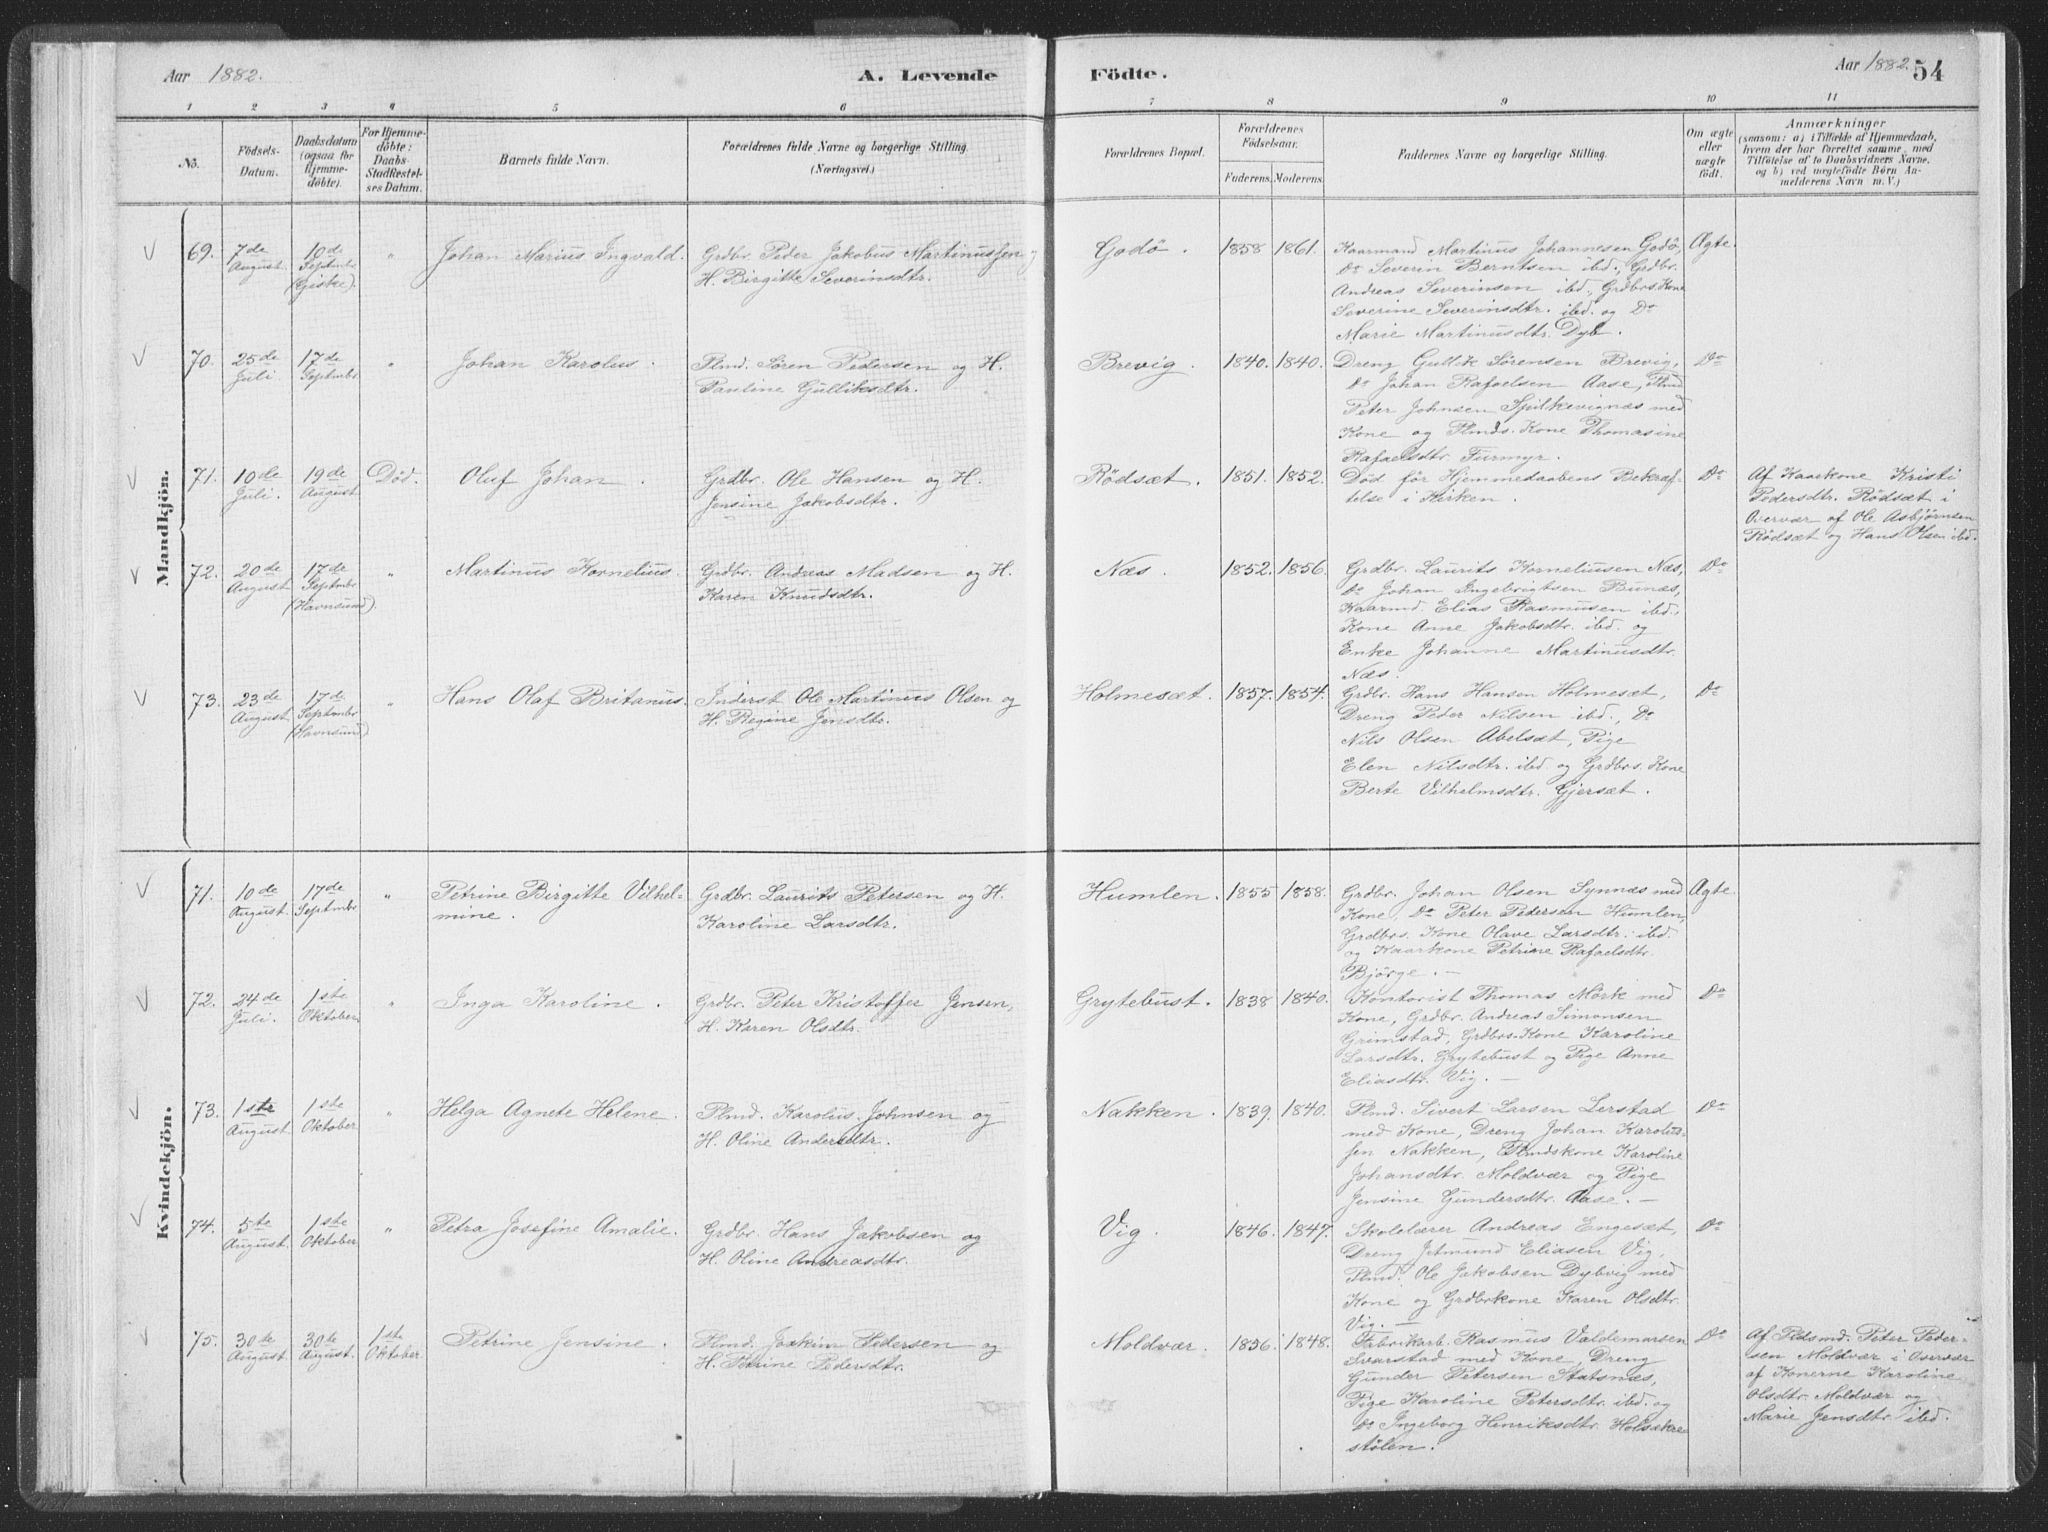 Aar 1882.
A. Levende Födte.
Aar 1882. 54
1 2 3 4 5 6 7 8 9 10 11
No.
Födsels-Datum.
Daabsdatum (ogsaa for Hjemme-döbte).
For Hjemme-döbte: Daabs-Stadfæstel-ses Datum.
Barnets fulde Navn.
Forældrenes fulde Navne og borgerlige Stilling. (Næringsvei.)
Forældrenes Bopæl.
Forældrenes Födselsaar.
Faderens. Moderens.
Faddernes Navne og borgerlige Stilling.
Om ægte eller uægte födt.
Anmærkninger
(saasom: a) i Tilfælde af Hjemmedaab,
hvem der har forrettet samme, med
Tilföielse af to Daabsvidners Navne.
og b) ved uægtefödte Börn An-
melderens Navn m. V.)
Mandkjön.
69. 7de August. 10de Septmbr. (Giske). " Johan Marius Ingvald. Grdbr. Peder Jakobus Martinussen og
H. Birgitte Severinsdtr.
Godö. 1858 1861. Kaarmand Martinus Johannesen Godö, Ægte.
Do Severin Berntsen ibd., Grdbr.
Andreas Severinsen ibd., Grdbrs. Kone
Severine Severinsdtr. ibd. og Do
Marie Martinusdtr. Dyb.
70. 25de Juli 17de Septmbr. " Johan Karolus. Plmd. Sören Pedersen og H.
Pauline Gulliksdtr.
Brevig. 1840. 1840. Dreng Gullik Sörensen Brevig, Do
Do Johan Rafaelsen Aase, Plmd
Peter Johnsen Spilkevignæs med
Kone og Plmds. Kone Thomasine
Rafaelsdtr. Furmyr.
71. 10de Juli. 19de August Död. Oluf Johan. Grdbr. Ole Hansen og H.
Jensine Jakobsdtr.
Rödsæt. 1851. 1852. Död för Hjemmedaabens Bekræf- Do
telse i Kirken.
Af Kaarkone Kristi
Pedersdtr. Rödsæt i
Overvær af Ole Asbjørnsen
Rödsæt og Hans Olsen ibd.
72. 20de August 17de Septmbr. (Havnsund). " Martinus Kornelius. Grdbr. Andreas Madsen og H.
Karen Knudsdtr.
Næs. 1852. 1856. Grdbr. Laurits Korneliusen Næs, Do
Do Johan Ingebrigtsen Bunæs,
Kaarmd. Elias Rasmusen ibd.,
Kone Anne Jakobsdtr. ibd. og
Enke Johanne Martinusdtr.
Næs.
73. 23de August 17de Septmbr. (Havnsund) " Hans Olaf Britanus. Inderst Ole Martinus Olsen og
H. Regine Jensdtr.
Holmesæt. 1857. 1854. Grdbr. Hans Hansen Holmesæt, Do
Dreng Peder Nilsen ibd., Do
Nils Olsen Abelsæt, Pige
Elen Nilsdtr. ibd. og Grdbrs. Kone
Berte Vilhelmsdtr. Gjersæt.
Kvindekjön.
71. 10de August. 17de Septmbr " Petrine Birgitte Vilhel-
mine. Grdbr. Laurits Petersen og H.
Karoline Larsdtr.
Humlen. 1855 1858. Grdbr. Johan Olsen Synnæs med Ægte.
Kone, Do Peter Pedersen Humlen,
Grdbrs. Kone Olave Larsdtr. ibd.
og Kaarkone Petrine Rafaelsdtr.
Bjørge. —
72. 24de Juli. 1ste Oktober. " Inga Karoline. Grdbr. Peter Kristoffer Jensen,
H. Karen Olsdtr.
Grytebust. 1838 1840. Kontorist Thomas Mörk med Do
Kone, Grdbr. Andreas Simonsen
Grimstad, Grdbrs. Kone Karoline
Larsdtr. Grytebust og Pige Anne
Eliasdtr. Vig. —
73. 1ste August 1ste Oktober " Helga Agnete Helene. Plmd. Karolus Johnsen og
H. Oline Andersdtr.
Nakken. 1839. 1840. Plmd. Sivert Larsen Lerstad Do
med Kone, Dreng Johan Karolus-
sen Nakken, Plmdskone Karoline
Johansdtr. Moldvær og Pige
Jensine Gundersdtr. Aase. —
74. 5te August. 1ste Oktober " Petra Josefine Amalie. Grdbr. Hans Jakobsen og
H. Oline Andreasdtr.
Vig. 1846. 1847. Skolelærer Andreas Engesæt, Do
Dreng Jetmund Eliasen Vig,
Plmd. Ole Jakobsen Dybvig med
Kone og Grdbrkone Karen Olsdtr.
Vig. —
75. 30te August. 30te August. 1ste Oktober Petrine Jensine. Plmd. Joakim Pedersen og
H. Petrine Pedersdtr.
Moldvær. 1836. 1848. Fabrikarb. Rasmus Valdemarsen Do
Svarstad med Kone, Dreng
Gunder Petersen Statsnæs,
Pige Karoline Petersdtr. ibd. og
Do Ingeborg Henriksdtr. Holsækre-
stölen.
Af Pldsmd. Peter Peder-
sen Moldvær i Overvær
af Konerne Karoline
Olsdtr. Moldvær og
Marie Jensdtr. ibd.